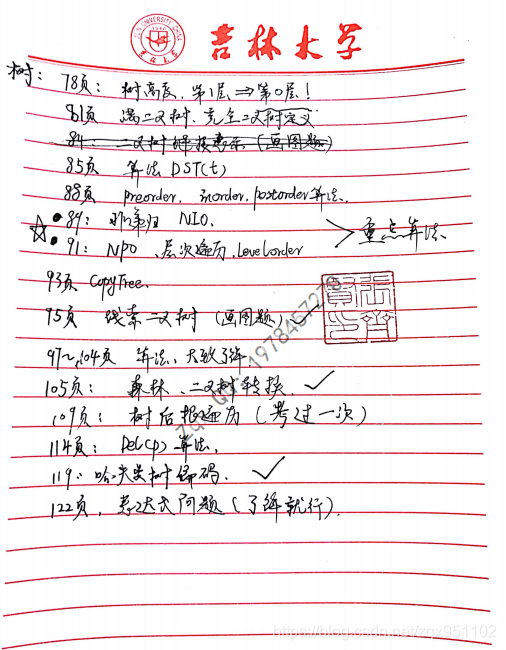 JILIN UNIVERSITY CHINA
1946
吉林大学
吉林大学
树:
78页: 树高度, 第1层⇒第0层!
81页 满二叉树, 完全二叉树定义
84: 二叉树链接表示(画图题)
85页 算法DST(t)
88页 preorder, inorder, postorder算法.
☆ • 89: 非递归 NIO,
• 91: NPO、层次遍历, Levelorder
> 重点算法
93页 CopyTree.
95页 线索二叉树 (画图题) ✓
97~104页 算法, 大致了解
105页: 森林、二叉树转换 ✓
109页: 树后根遍历 (考过一次)
114页: Del(p) 算法,
119: 哈夫曼树编码. ✓
122页, 表达式问题 (了解就行).
https://blog.csdn.net/zqz951102